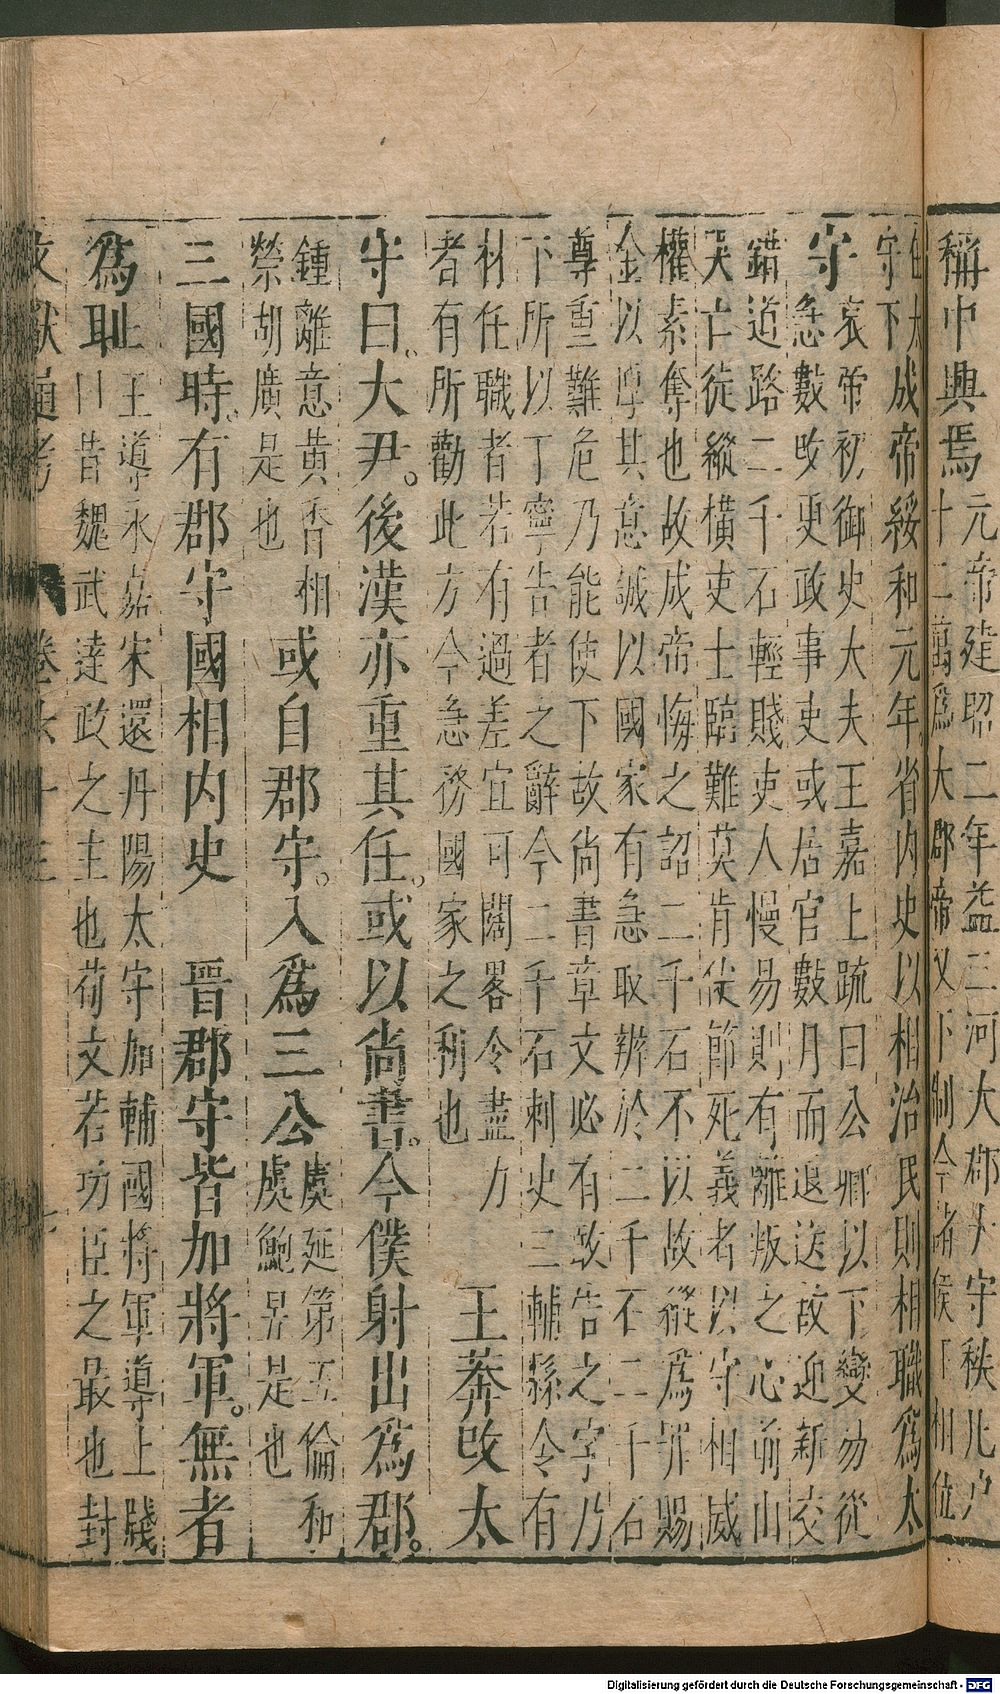 稱中興焉
元帝建昭二年益三河大郡太守秩戶
十二萬爲大郡帝又下制令諸侯王相位
在太
守下
成帝綏和元年省内史以相治民則相職爲太
守
哀帝初御史大夫王嘉上疏曰公卿以下變動從
急數改更政事吏或居官數月而退送故迎新交
錯道路二千石輕賤吏人慢易則有離叛之心前山
吴亡徒縱橫吏士臨難莫肯伏節死義者以守相威
權素奪也故成帝悔之詔二千石不以故縱爲罪賜
金以厚其意誠以國家有急取辦於二千石二千石
尊重難危乃能使下故尚書章文必有敢告之字乃
下所以丁寧告者之辭今二千石刺史三輔縣令有
材任職者若有過差宜可闊畧令盡力
者有所勸此方今急務國家之利也
王莽改太
守曰。大尹。後漢亦重其任。或以尚書。令僕射出爲郡。
鍾離意黄香相
榮胡廣是也
或自郡守。入爲三公
虞延第五倫和
虞鮑昱是也
三國時。有郡守國相内史　晉郡守皆加將軍。無者
爲耻
王導永嘉宋還丹陽太守加輔國將軍導上牋
曰昔魏武達政之主也荀文若功臣之最也封
文獻通考　卷六十三　七
Digitalisierung gefördert durch die Deutsche Forschungsgemeinschaft - DFG